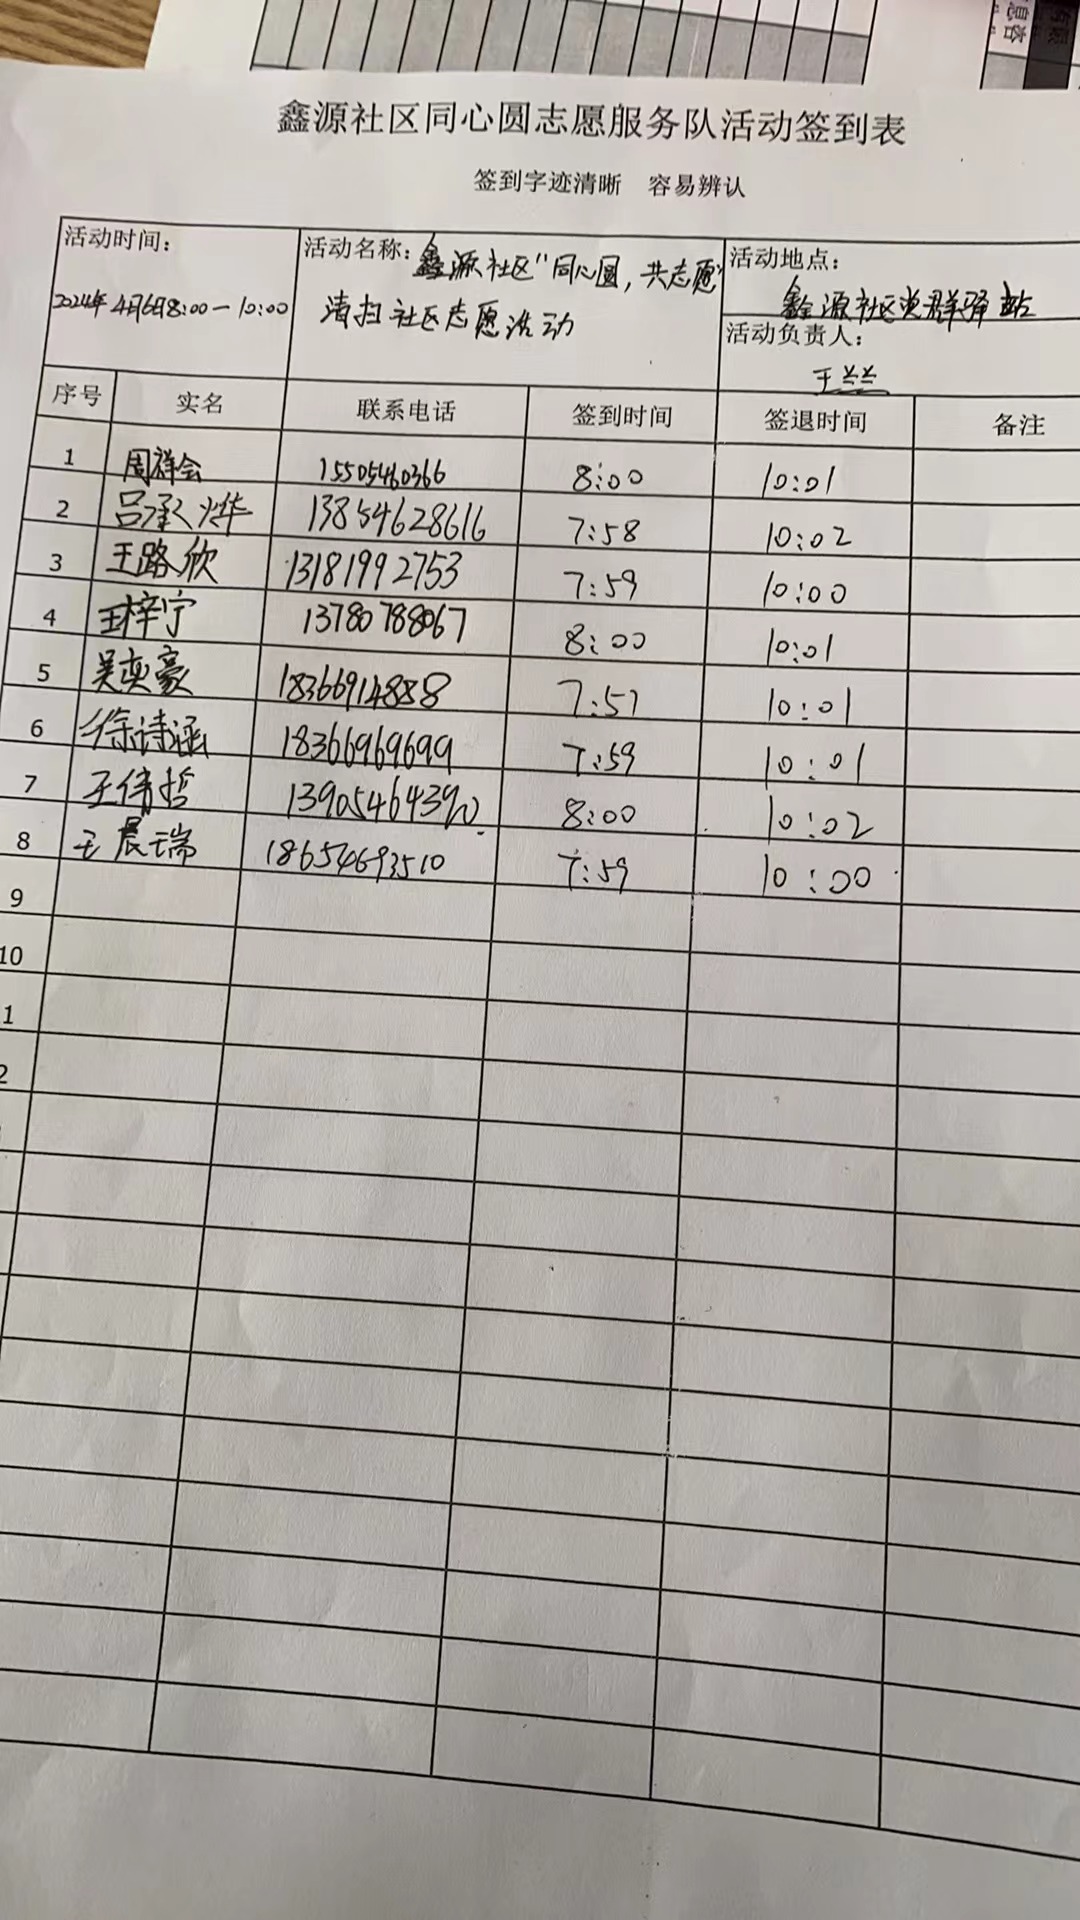 鑫源社区同心圆志愿服务队活动签到表
签到字迹清晰 容易辨认
活动时间:
2024年4月6日8:00—10:00
活动名称: 鑫源社区"同心圆,共志愿"
清扫社区志愿活动
活动地点:
鑫源社区党群驿站
活动负责人:
王兰兰
序号 实名 联系电话 签到时间 签退时间 备注
1 周祥会 15505460366 8:00 10:01
2 吕承烨 13854628616 7:58 10:02
3 王路欣 13181992753 7:59 10:00
4 王梓宁 13780788067 8:00 10:01
5 吴奕豪 18366914888 7:57 10:01
6 徐诗涵 18366969699 7:59 10:01
7 王伟哲 13905464390 8:00 10:02
8 王晨瑞 18654693510 7:59 10:00
9
10
1
2